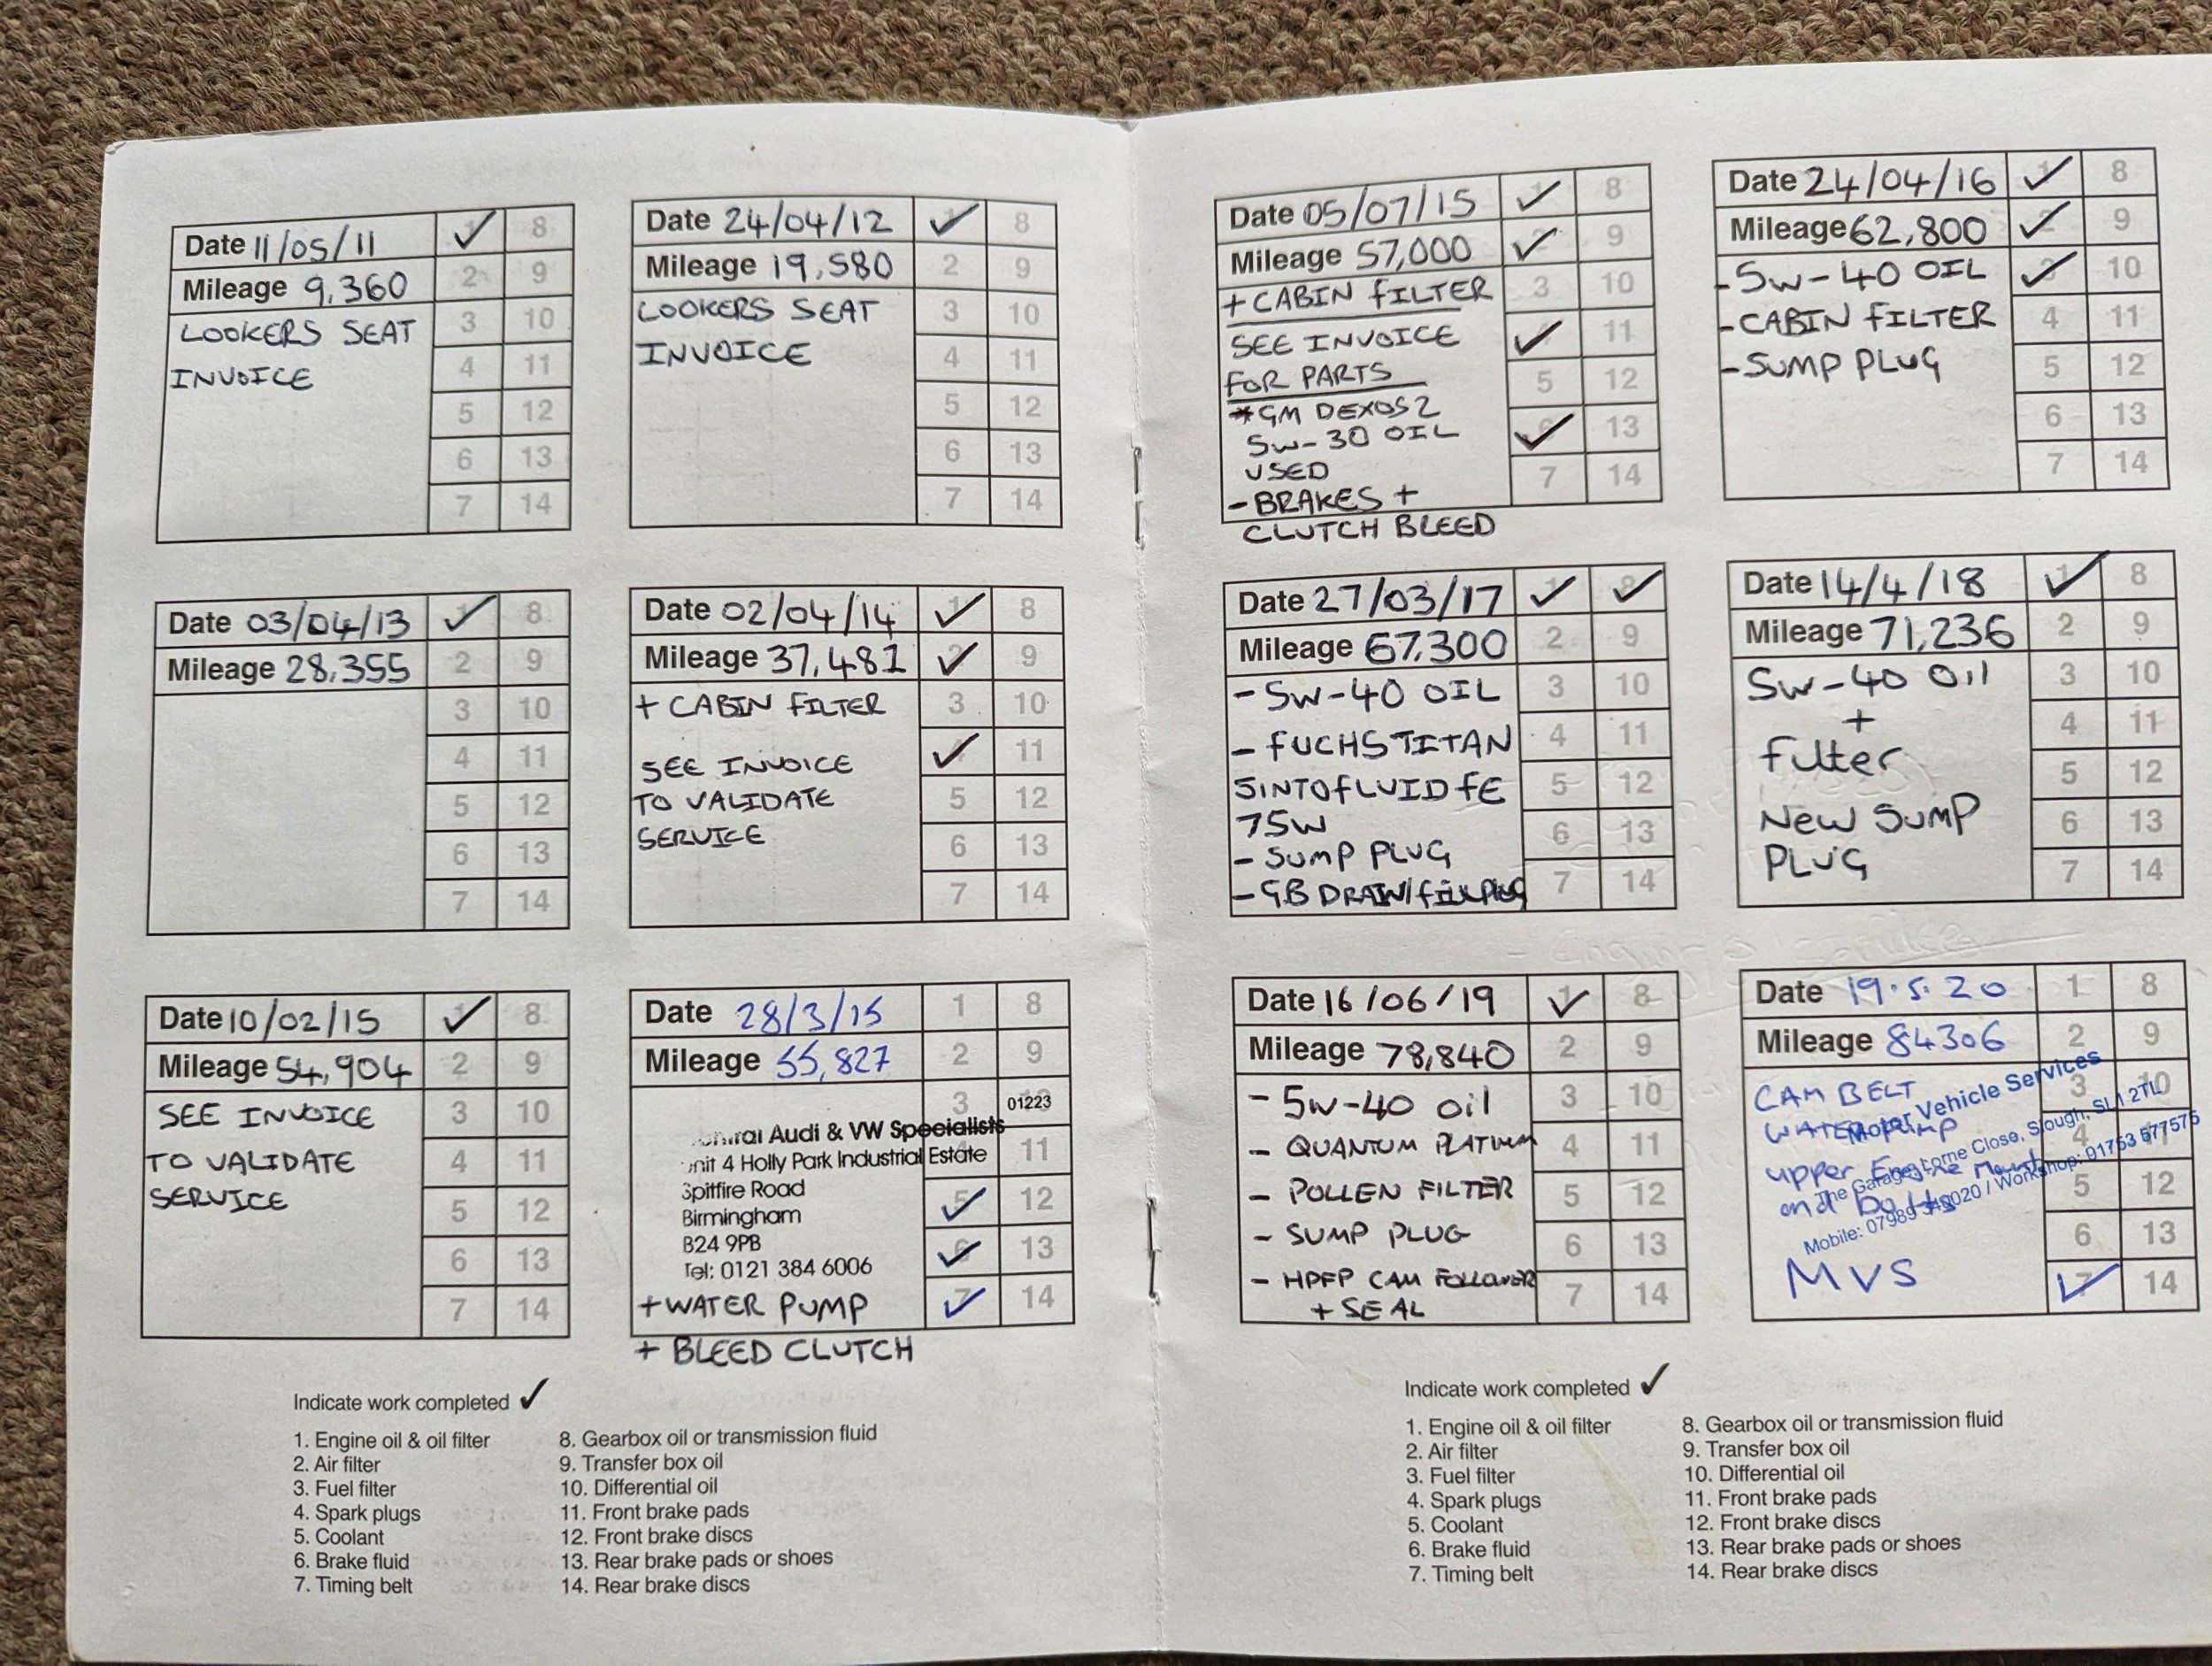 Date 11/05/11 ✓ 8
Mileage 9,360 2 9
LOOKERS SEAT 3 10
INVOICE 4 11
5 12
6 13
7 14
Date 24/04/12 ✓ 8
Mileage 19,580 2 9
LOOKERS SEAT 3 10
INVOICE 4 11
5 12
6 13
7 14
Date 03/04/13 ✓ 8
Mileage 28,355 2 9
3 10
4 11
5 12
6 13
7 14
Date 02/04/14 ✓ 8
Mileage 37,481 ✓ 9
+ CABIN FILTER 3 10
SEE INVOICE ✓ 11
TO VALIDATE 5 12
SERVICE 6 13
7 14
Date 10/02/15 ✓ 8
Mileage 54,904 2 9
SEE INVOICE 3 10
TO VALIDATE 4 11
SERVICE 5 12
6 13
7 14
Date 28/3/15 1 8
Mileage 55,827 2 9
3 01223
Audi & VW Specialists
Unit 4 Holly Park Industrial Estate 11
Spitfire Road ✓ 12
Birmingham
B24 9PB ✓ 13
Tel: 0121 384 6006
+ WATER PUMP ✓ 14
+ BLEED CLUTCH
Indicate work completed ✓
1. Engine oil & oil filter
2. Air filter
3. Fuel filter
4. Spark plugs
5. Coolant
6. Brake fluid
7. Timing belt
8. Gearbox oil or transmission fluid
9. Transfer box oil
10. Differential oil
11. Front brake pads
12. Front brake discs
13. Rear brake pads or shoes
14. Rear brake discs
Date 05/07/15 ✓ 8
Mileage 57,000 ✓ 9
+ CABIN FILTER 3 10
SEE INVOICE ✓ 11
FOR PARTS 5 12
*GM DEXOS 2
5W-30 OIL ✓ 13
USED 7 14
- BRAKES +
CLUTCH BLEED
Date 24/04/16 ✓ 8
Mileage 62,800 ✓ 9
- 5W-40 OIL ✓ 10
- CABIN FILTER 4 11
- SUMP PLUG 5 12
6 13
7 14
Date 27/03/17 ✓ ✓
Mileage 67,300 2 9
- 5W-40 OIL 3 10
- FUCHS TITAN 4 11
SINTOFLUID FE 5 12
75W 6 13
- SUMP PLUG
- GB DRAIN/FILL PLUG 7 14
Date 14/4/18 ✓ 8
Mileage 71,236 2 9
5W-40 Oil 3 10
+ 4 11
Filter 5 12
New SUMP 6 13
PLUG 7 14
Date 16/06/19 ✓ 8
Mileage 78,840 2 9
- 5W-40 oil 3 10
- QUANTUM PLATINUM 4 11
- POLLEN FILTER 5 12
- SUMP PLUG 6 13
- HPFP CAM FOLLOWER 7 14
+ SEAL
Date 19.5.20 1 8
Mileage 84306 2 9
CAM BELT 3 10
WATER PUMP 4 11
upper Engine Mount 5 12
and Bolts
6 13
MVS ✓ 14
Motor Vehicle Services
The Garage, Lorne Close, Slough, SL1 2TL
Mobile: 07989 / Workshop: 01753 577575
Indicate work completed ✓
1. Engine oil & oil filter
2. Air filter
3. Fuel filter
4. Spark plugs
5. Coolant
6. Brake fluid
7. Timing belt
8. Gearbox oil or transmission fluid
9. Transfer box oil
10. Differential oil
11. Front brake pads
12. Front brake discs
13. Rear brake pads or shoes
14. Rear brake discs